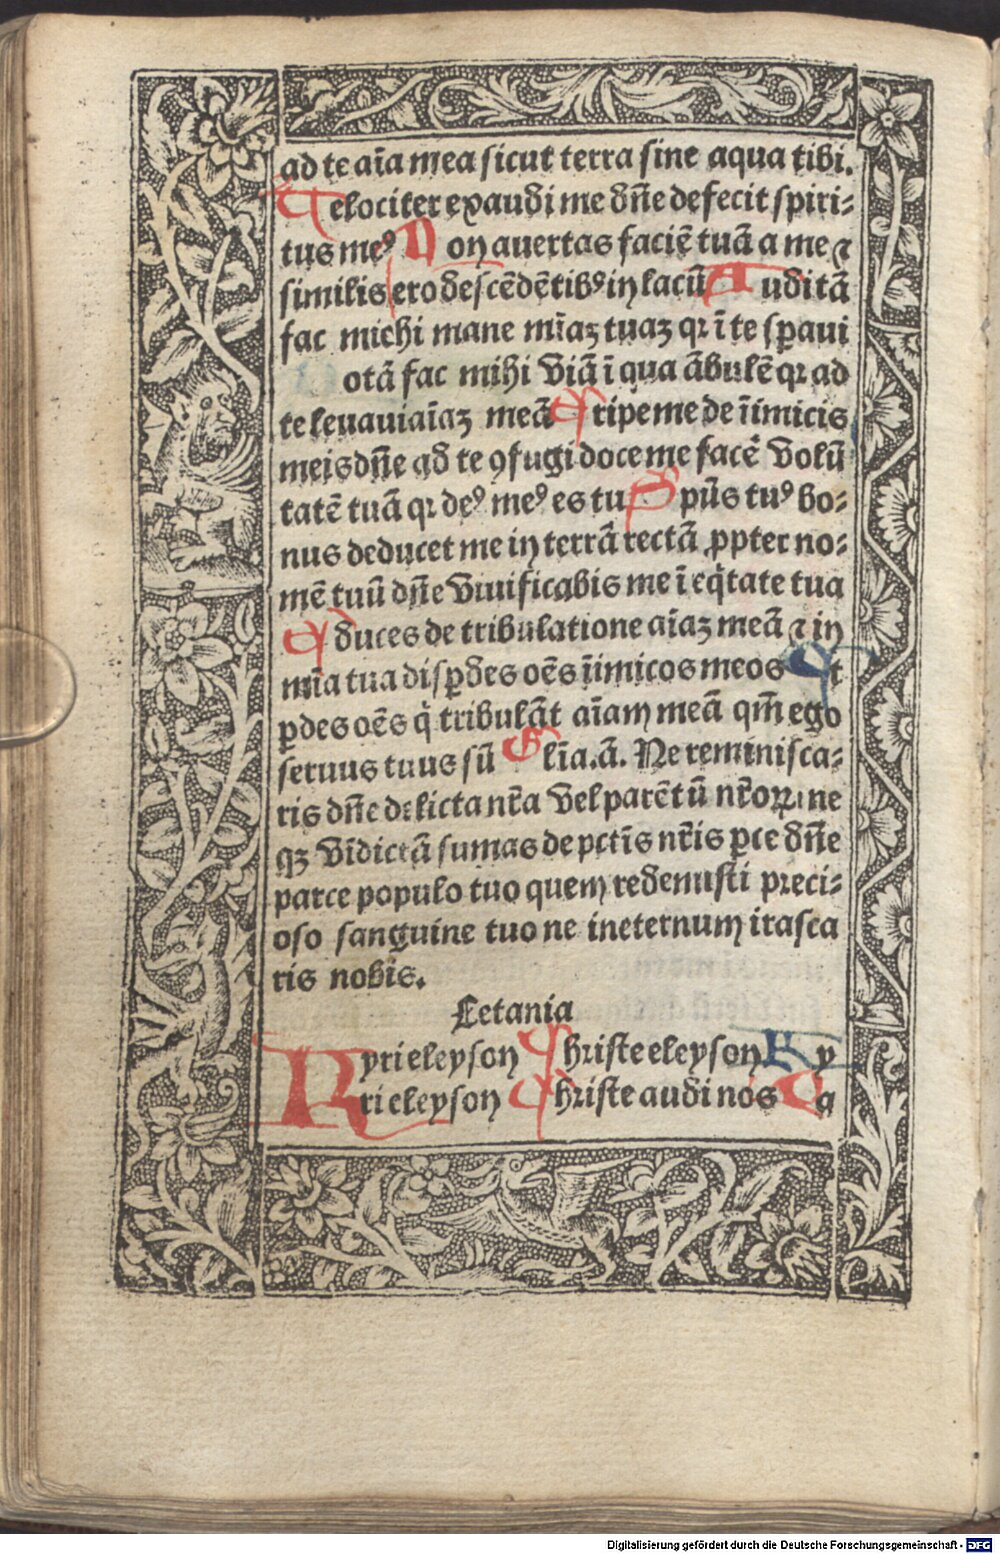 ad te aīa mea sicut terra sine aqua tibi.
Velociter exaudi me dn̄e defecit spiri-
tus meꝰ Non avertas faciē tuā a me ⁊
similis ero descēdētibꝰ in lacū Auditā
fac michi mane mīaꝫ tuaꝫ qꝛ ī te sꝑaui
otā fac mihi viā ī qua ābulē qꝛ ad
te leuaui aīaꝫ meā Eripe me de īimicis
meis dn̄e ad te ꝯfugi doce me facē volū
tatē tuā qꝛ deꝰ meꝰ es tu Spūs tuꝰ bo-
nus deducet me in terrā rectā ꝓpter no-
mē tuū dn̄e viuificabis me ī eq̄tate tua
Educes de tribulatione aīaꝫ meā ⁊ in
mīa tua disꝑdes oēs īimicos meos Et
ꝑdes oēs q̄ tribulāt aīam meā qm̄ ego
seruus tuus sū Glīa.ā. Ne reminisca-
ris dn̄e delicta nr̄a vel parētū nr̄oꝝ: ne
qꝫ vīdictā sumas de pctīs nr̄is ꝑce dn̄e
parce populo tuo quem redemisti preci-
oso sanguine tuo ne ineternum irasca
ris nobīs.
Letania
Kyrieleyson Christeeleyson Ky
rieleyson Christe audi nos Pa
Digitalisierung gefördert durch die Deutsche Forschungsgemeinschaft - DFG